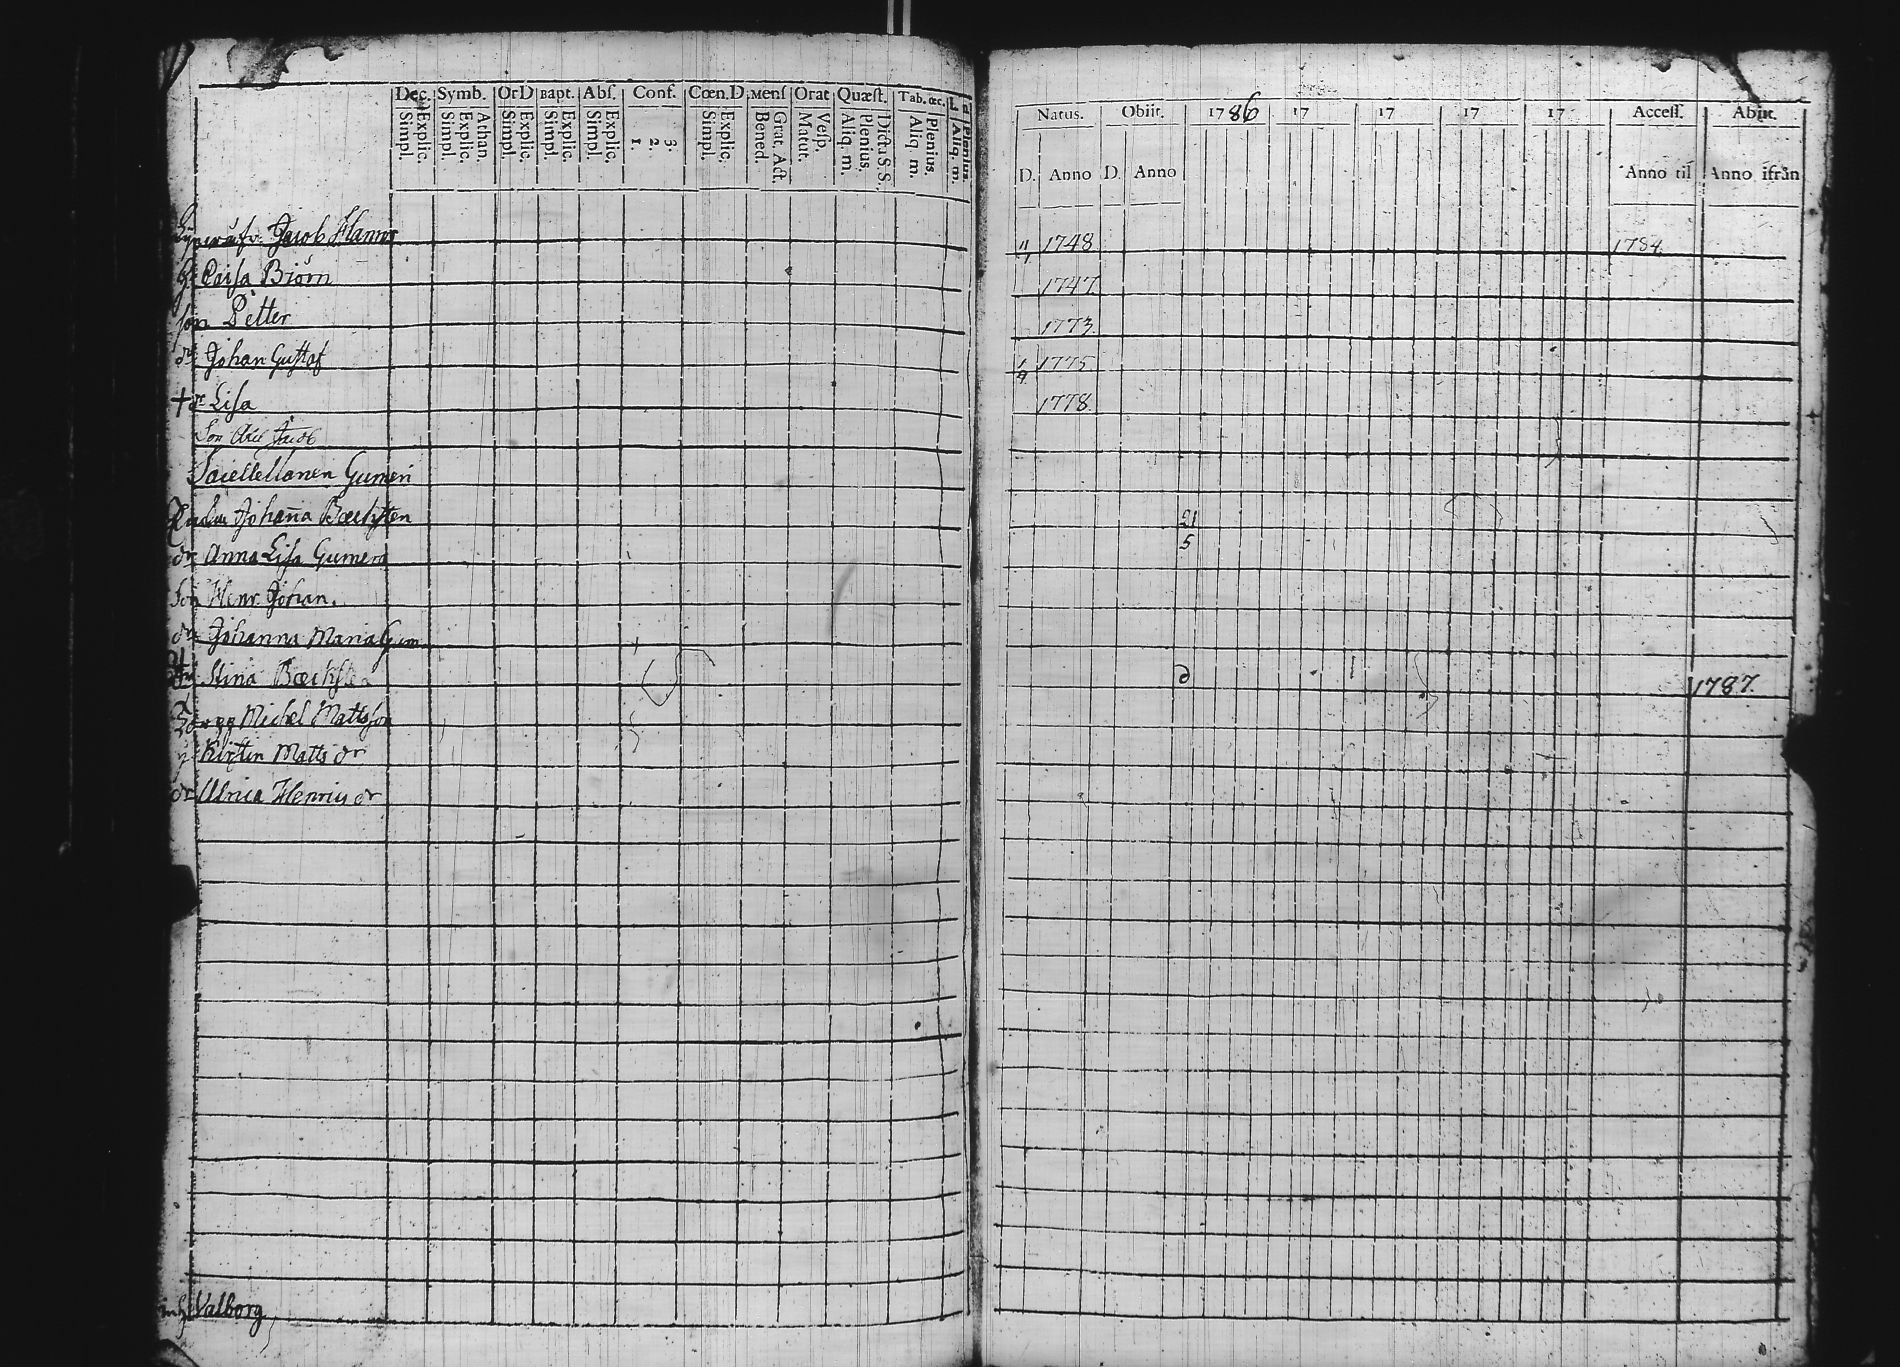 Dec. Symb. OrD Bapt. Abs. Conf. Cœn.D. Mens Orat Quæst. Tab. œc.
Explic. Simpl. Athan. Explic. Simpl. Explic. Simpl. Explic. Simpl. Explic. Simpl. 3. 2. 1. Explic. Simpl. Grat. Act. Bened. Vesp. Matut. Dictu S. S. Plenius. Aliq. m. Plenius. Aliq. m. Plenius. Aliq. m.
Jacob Hammar
h. Caisa Biörn
son Petter
dr Johan Gustaf
+ dr Lisa
Son Jacob
Gumeri
Enkan Johanna
dr Anna Lisa Gumera
Son Henr. Johan.
dr Johanna Maria Gum
Stina
Michel Mattsson
Kirstin Matts dr
dr Ulrica Henrics dr
Valborg
Natus. Obiit. 1786 17 17 17 17 Access. Abiit.
D. Anno D. Anno Anno til Anno ifrån
1748 1784.
1747.
1773.
1775
1778.
21
5
1787.